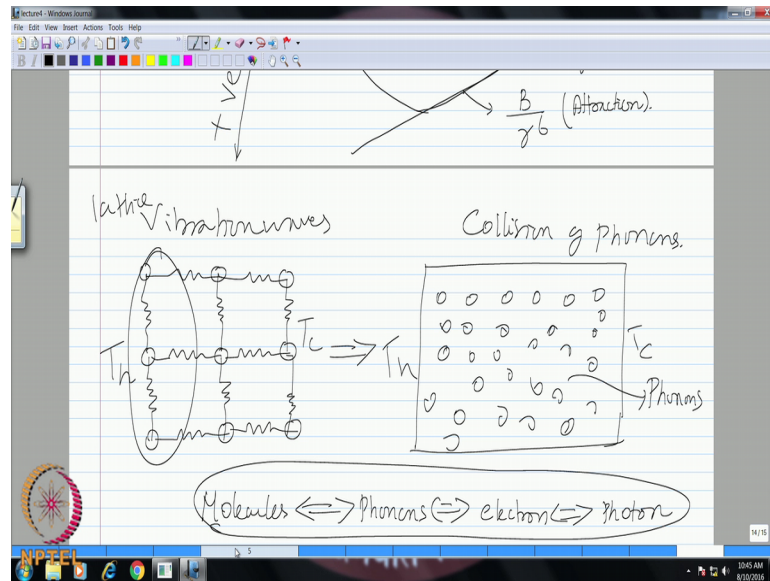 lecture4 - Windows Journal
File Edit View Insert Actions Tools Help
B I
+ ve
B (Attraction).
r^6
lattice Vibration waves
Collision of phonons.
Th
Tc
Th
Tc
Phonons
Molecules <=> Phonons <=> electron <=> Photon
14/15
5
NPTEL
10:45 AM
8/10/2016